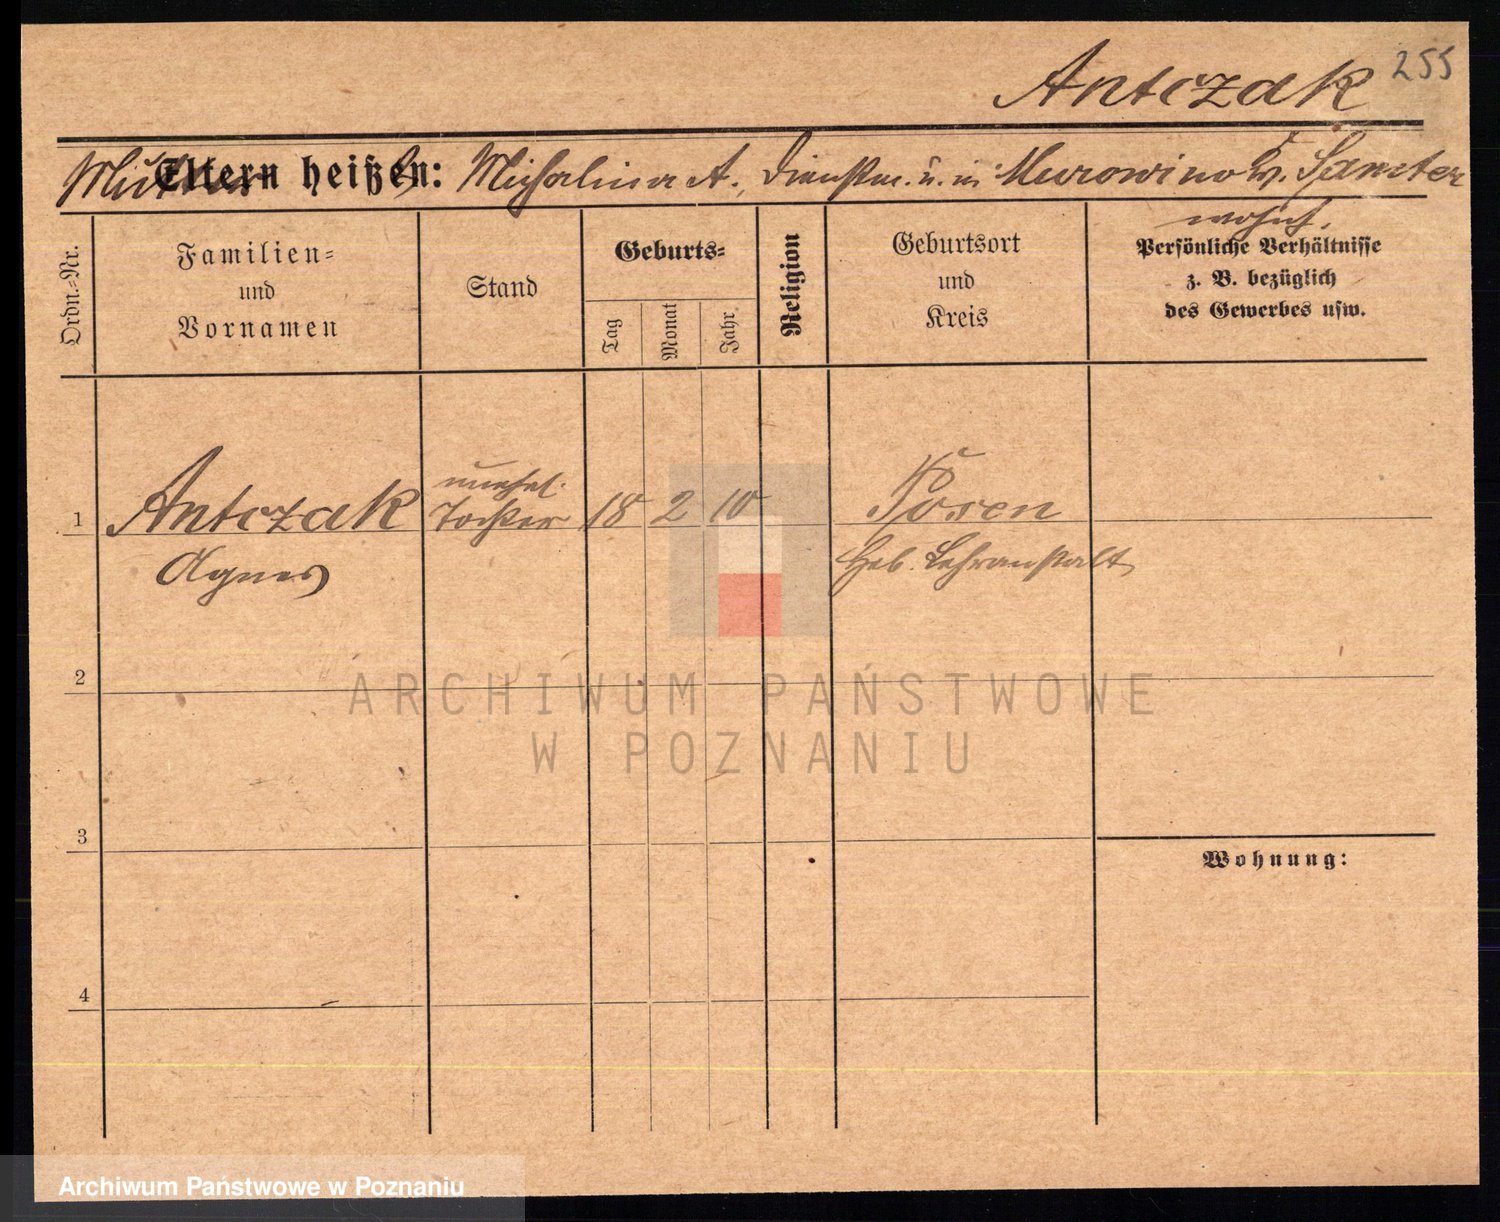 Antczak 255
Mutter Eltern heißen: Michalina A., Dienstm. u. in Murowino Kr. Samter
wohnh.
Ordn.-Nr.
Familien-
und
Vornamen
Stand
Geburts-
Tag
Monat
Jahr
Religion
Geburtsort
und
Kreis
Persönliche Verhältnisse
z. B. bezüglich
des Gewerbes usw.
unehel.
1 Antczak Tochter 18 2 10 Posen
Agnes Heb. Lehranstalt
2
ARCHIWUM PAŃSTWOWE
W POZNANIU
3
Wohnung:
4
Archiwum Państwowe w Poznaniu